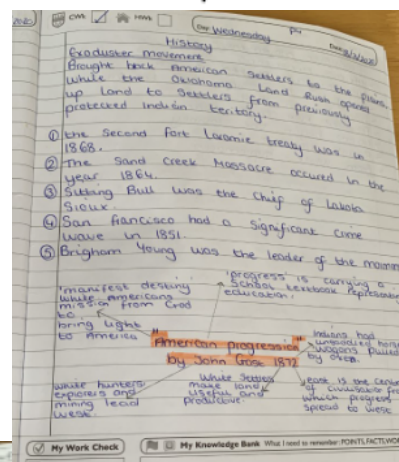 2020
CWK
HWK
Day Wednesday
P4
Date
History
Exoduster movement
Brought back American settlers to the plains,
while the Oklahoma Land Rush opened
up land to settlers from previously
protected Indian teritory.
① the second fort Laramie treaty was in
1868.
② The Sand Creek Massacre occured in the
year 1864.
③ Sitting Bull was the chief of Lakota
Sioux.
④ San francisco had a significant crime
wave in 1851.
⑤ Brigham Young was the leader of the
'manifest destiny
white Americans
mission from God
to
bring light
to America
'progress' is carrying a
school textbook
education.
"American progression"
by John Gast 1872
Indians had
wagons pulled
by oxen.
white hunters
explorers and
mining lead
west.
White settlers
make land
useful and
productive.
east is the
of civilisation from
which progress
spread to west.
My Work Check
My Knowledge Bank What I need to remember: POINTS, FACTS,